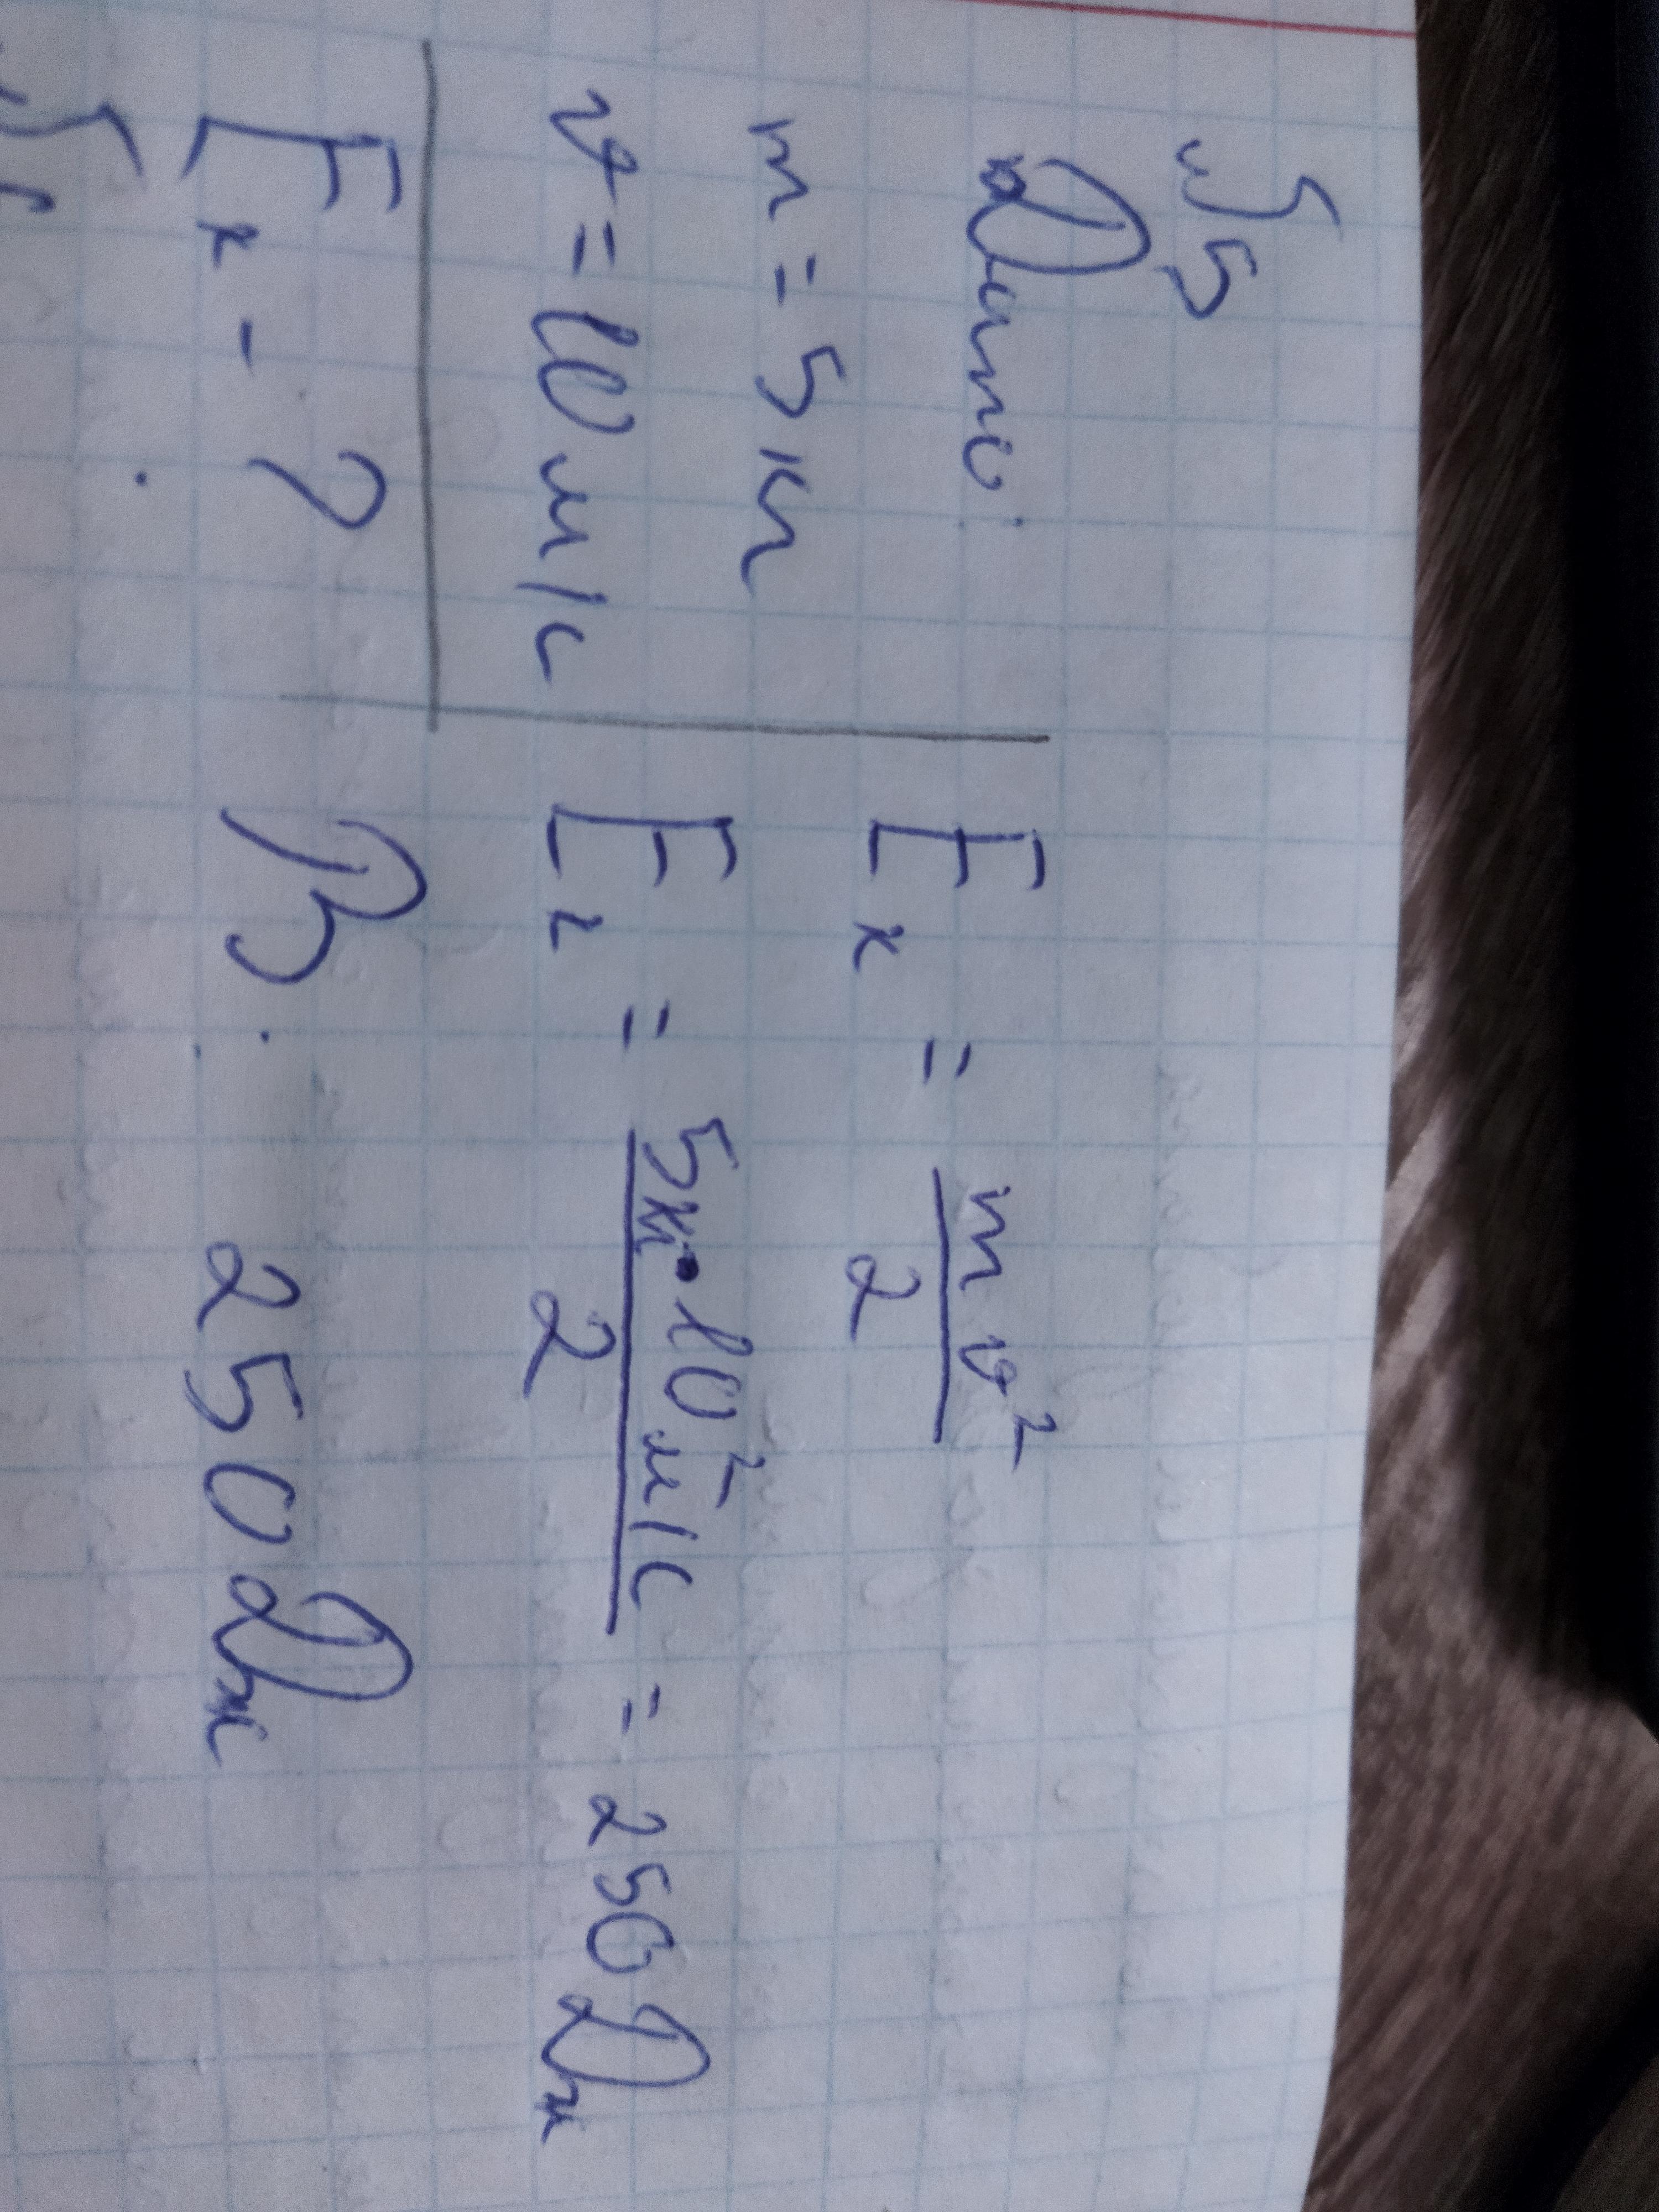 №5
Дано:
m = 5 кг
v = 10 м/с
Eк - ?
Eк = mv²/2
Eк = 5кг • 10² м/с / 2 = 250 Дж
В: 250 Дж